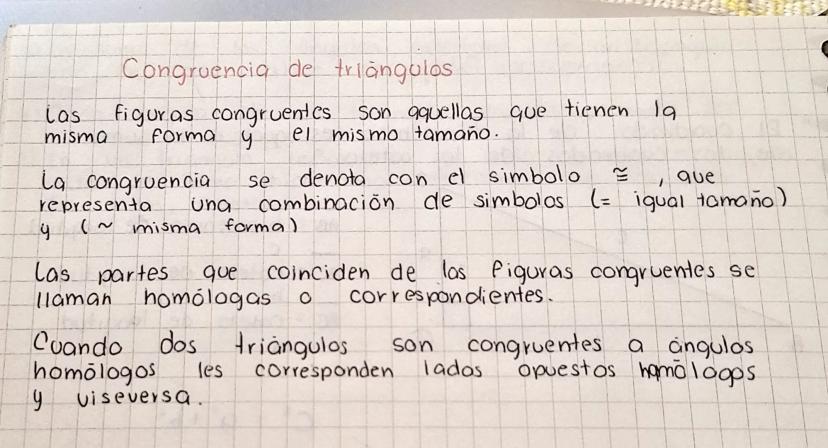 Congruencia de triángulos
Las figuras congruentes son aquellas que tienen la
misma forma y el mismo tamaño.
La congruencia se denota con el simbolo ≅, que
representa una combinación de simbolos (= igual tamaño)
y (~ misma forma)
Las partes que coinciden de las figuras congruentes se
llaman homólogas o correspondientes.
Cuando dos triángulos son congruentes a ángulos
homólogos les corresponden lados opuestos homólogos
y viseversa.